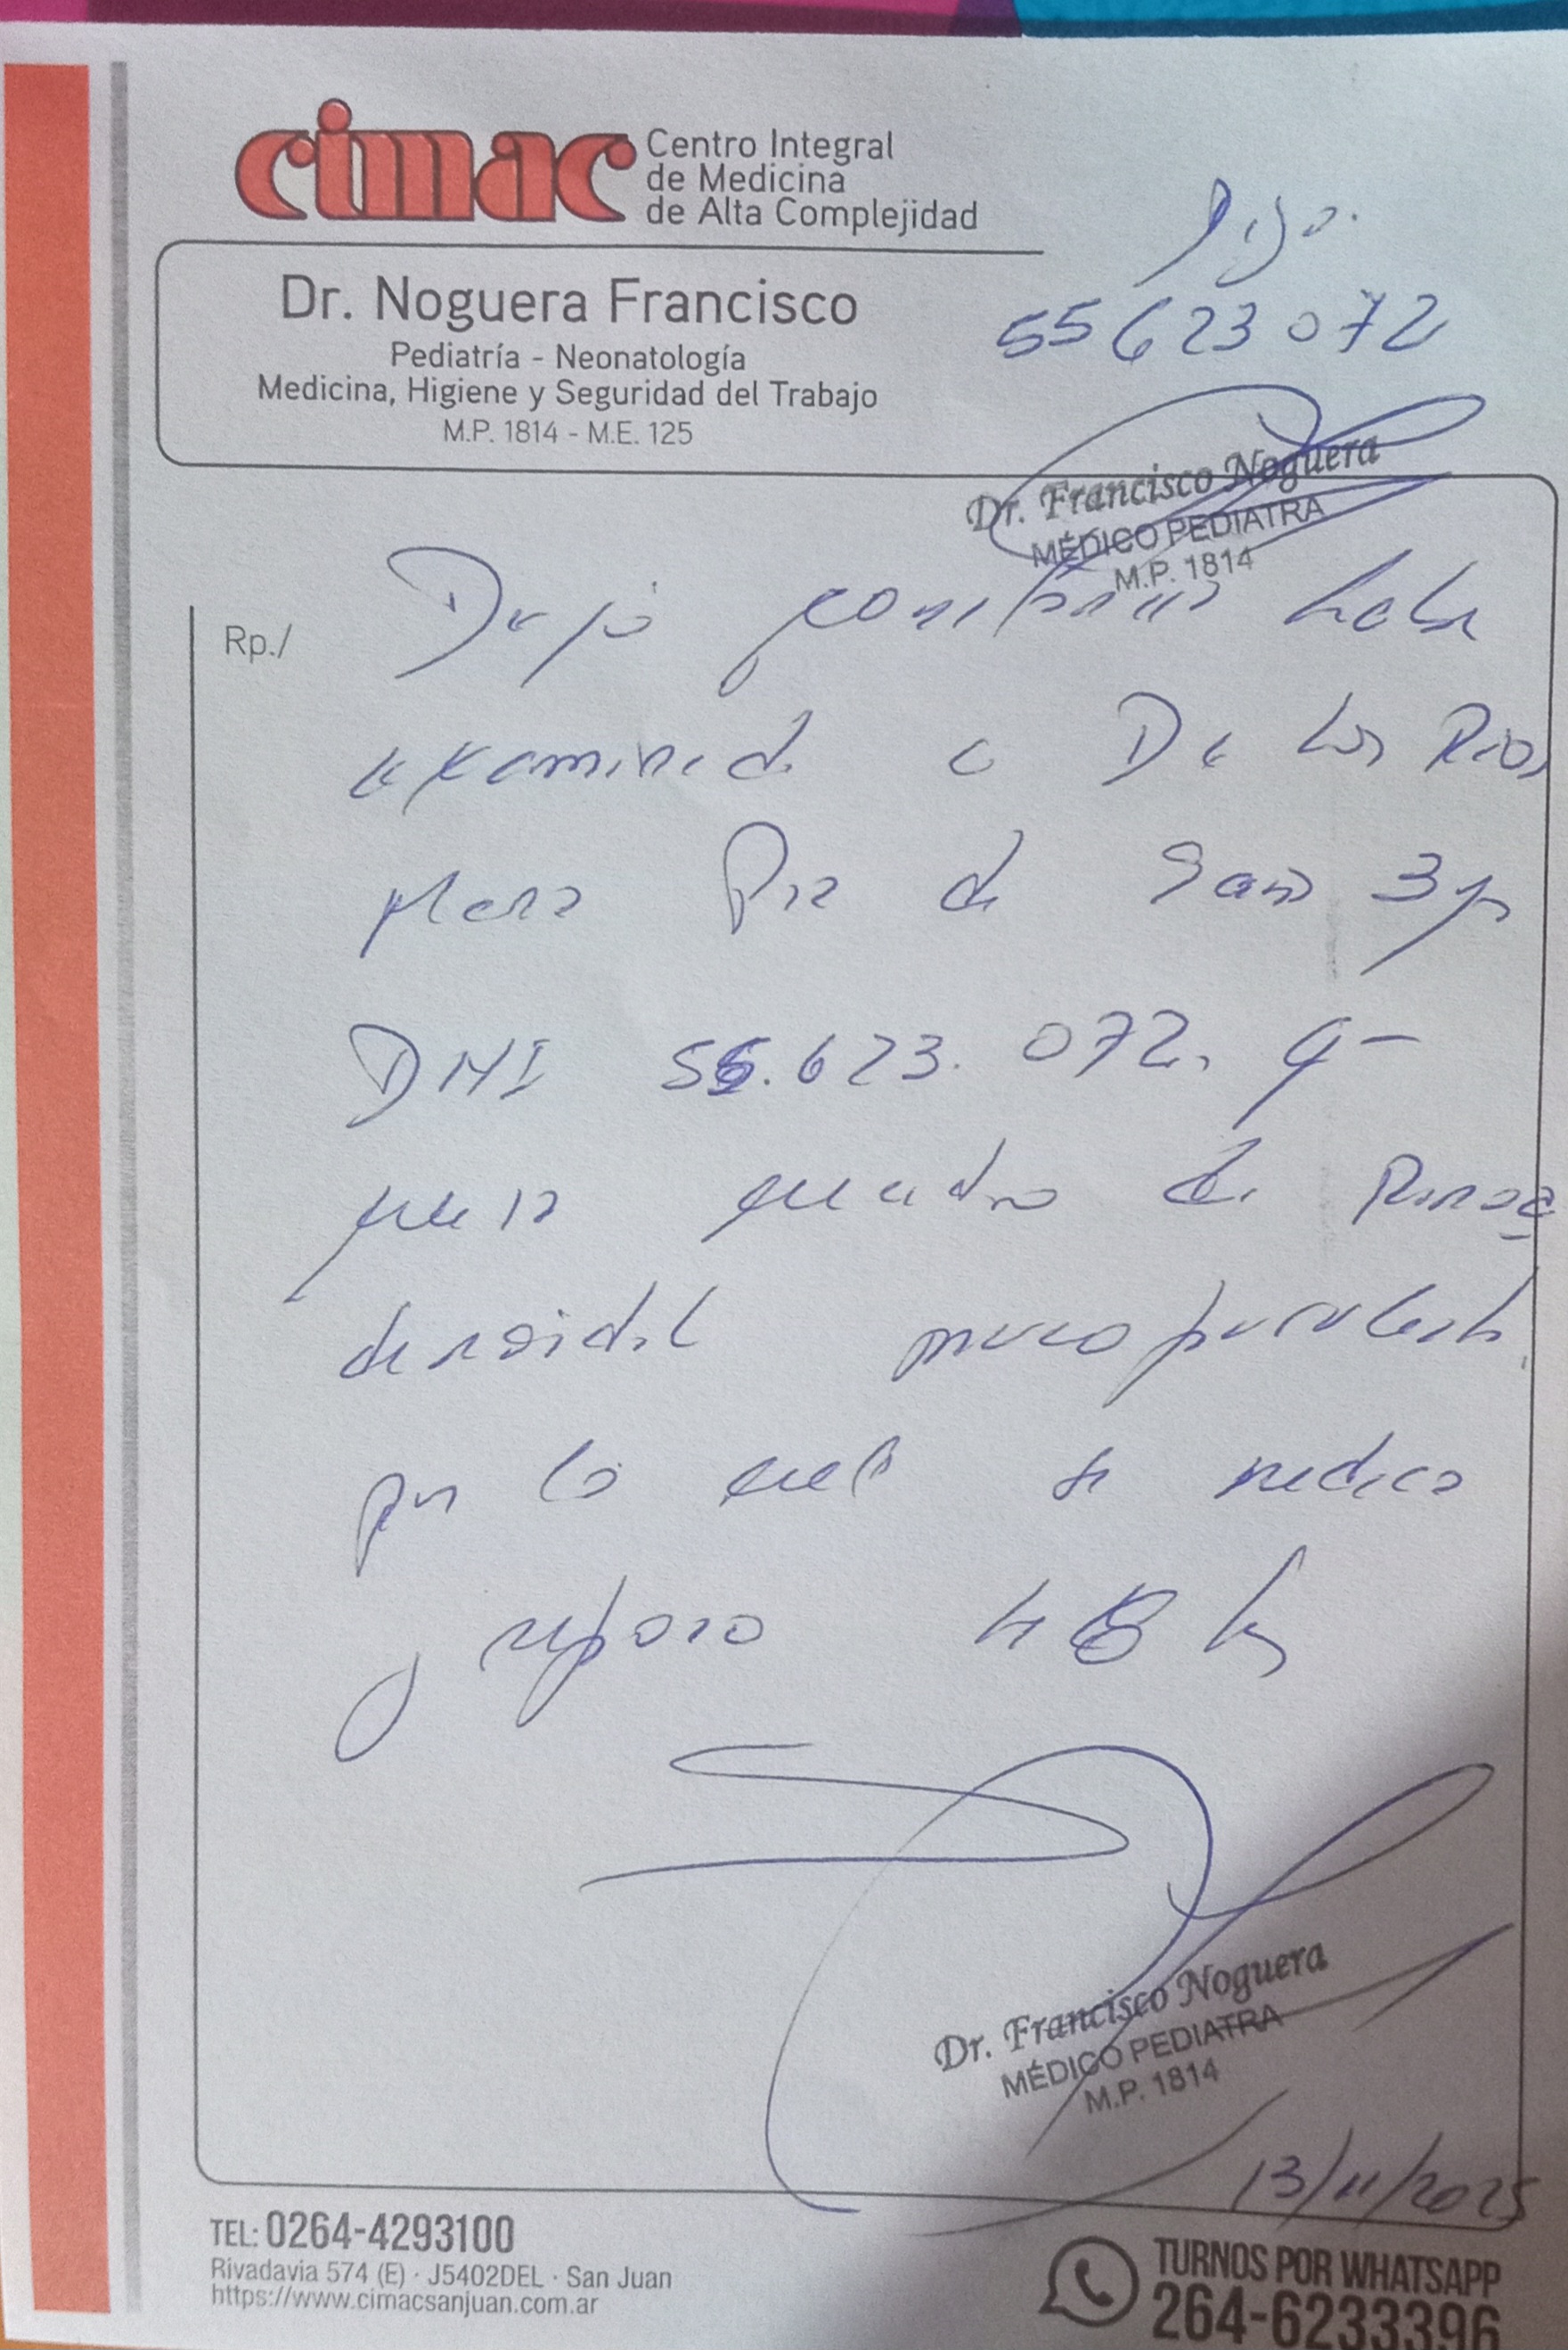 cimac Centro Integral
de Medicina
de Alta Complejidad
Digo.
55623072
Dr. Noguera Francisco
Pediatría - Neonatología
Medicina, Higiene y Seguridad del Trabajo
M.P. 1814 - M.E. 125
Dr. Francisco Noguera
MÉDICO PEDIATRA
M.P. 1814
Rp./ Dejo constancia haber
examinado a De los Rios
de 3
DNI 55.623.072. q-
cuadro de Rinoa
denoidal mucopurulenta,
por lo cual se medica
y reposo 48 hs
Dr. Francisco Noguera
MÉDICO PEDIATRA
M.P. 1814
13/11/2025
TEL: 0264-4293100
Rivadavia 574 (E) · J5402DEL · San Juan
https://www.cimacsanjuan.com.ar
TURNOS POR WHATSAPP
264-6233396